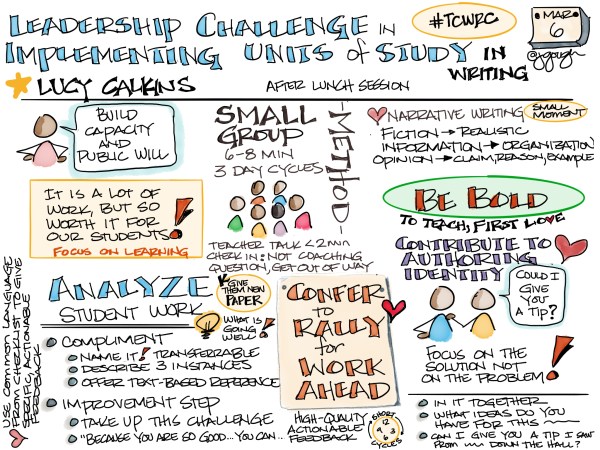 LEADERSHIP CHALLENGE IN
IMPLEMENTING UNITS of STUDY IN
WRITING
#TCWRC
MAR
6
@jgough
LUCY CALKINS
AFTER LUNCH SESSION
BUILD
CAPACITY
AND
PUBLIC WILL
IT IS A LOT OF
WORK, BUT SO
WORTH IT FOR
OUR STUDENTS!
FOCUS ON LEARNING
SMALL
GROUP
-METHOD-
6-8 MIN
3 DAY CYCLES
TEACHER TALK <2 min
CHECK IN: NOT COACHING
QUESTION, GET OUT OF WAY
NARRATIVE WRITING
SMALL
MOMENT
FICTION → REALISTIC
INFORMATION → ORGANIZATION
OPINION → CLAIM, REASON, EXAMPLE
BE BOLD
TO TEACH, FIRST LOVE
CONTRIBUTE TO
AUTHORING
IDENTITY
COULD I
GIVE
YOU
A TIP?
FOCUS ON THE
SOLUTION NOT
ON THE PROBLEM!
IN IT TOGETHER
WHAT IDEAS DO YOU
HAVE FOR THIS
CAN I GIVE YOU A TIP I SAW
FROM DOWN THE HALL?
ANALYZE
STUDENT WORK
GIVE
THEM NEW
PAPER
WHAT IS
GOING
WELL!
COMPLIMENT
NAME IT! TRANSFERRABLE
DESCRIBE 3 INSTANCES
OFFER TEXT-BASED REFERENCE
IMPROVEMENT STEP
TAKE UP THIS CHALLENGE
"BECAUSE YOU ARE SO GOOD...YOU CAN...
CONFER
to
RALLY
for
WORK
AHEAD
HIGH-QUALITY
ACTIONABLE
FEEDBACK
SHORT
12
3
6
9
CYCLES
USE COMMON LANGUAGE
FROM CHECKLIST TO GIVE
SPECIFIC, ACTIONABLE
FEEDBACK